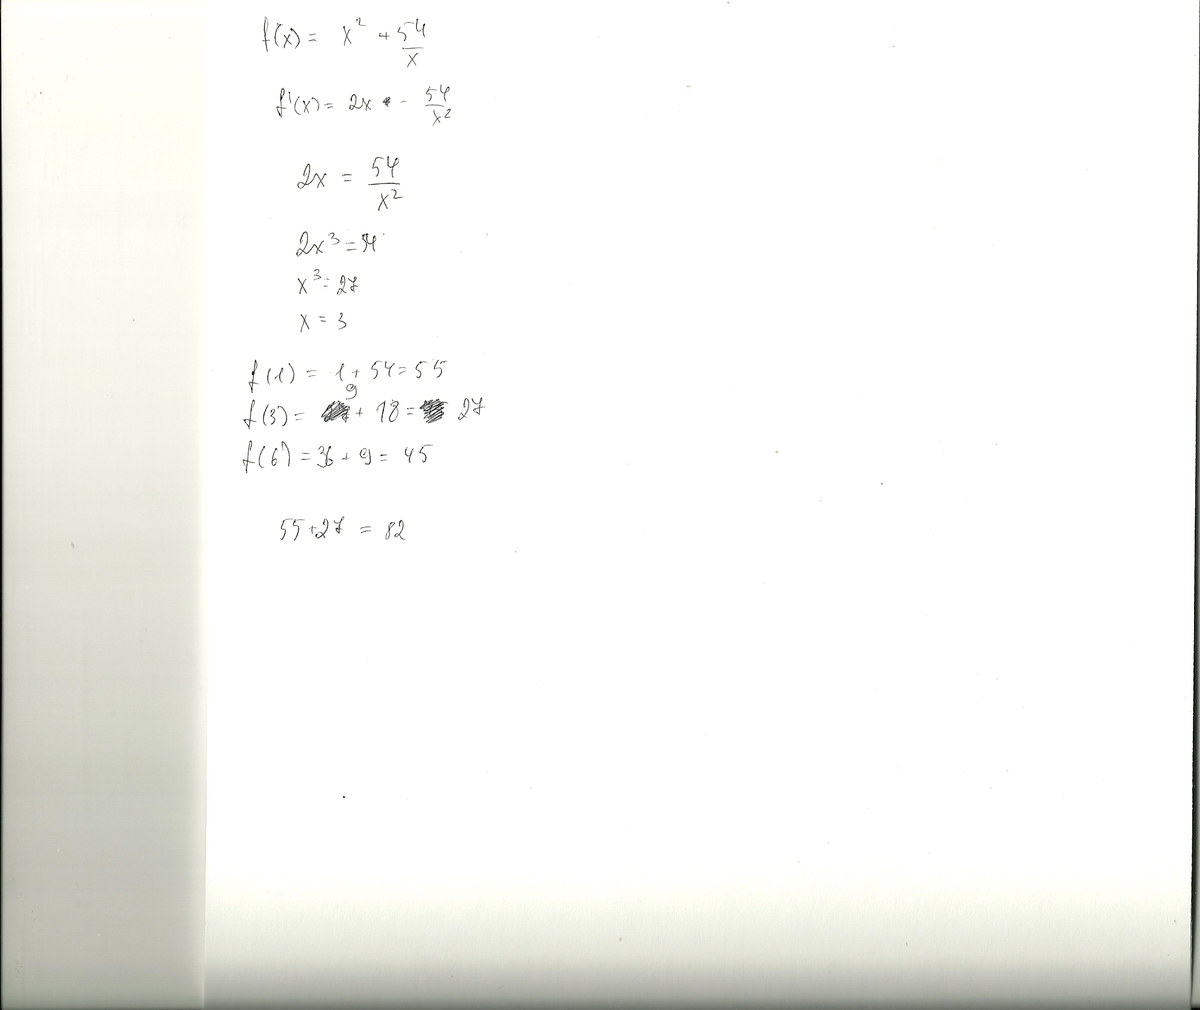 f(x) = x² + 54/x
f'(x) = 2x - 54/x²
2x = 54/x²
2x³ = 54
x³ = 27
x = 3
f(1) = 1 + 54 = 55
f(3) = 9 + 18 = 27
f(6) = 36 + 9 = 45
55 + 27 = 82